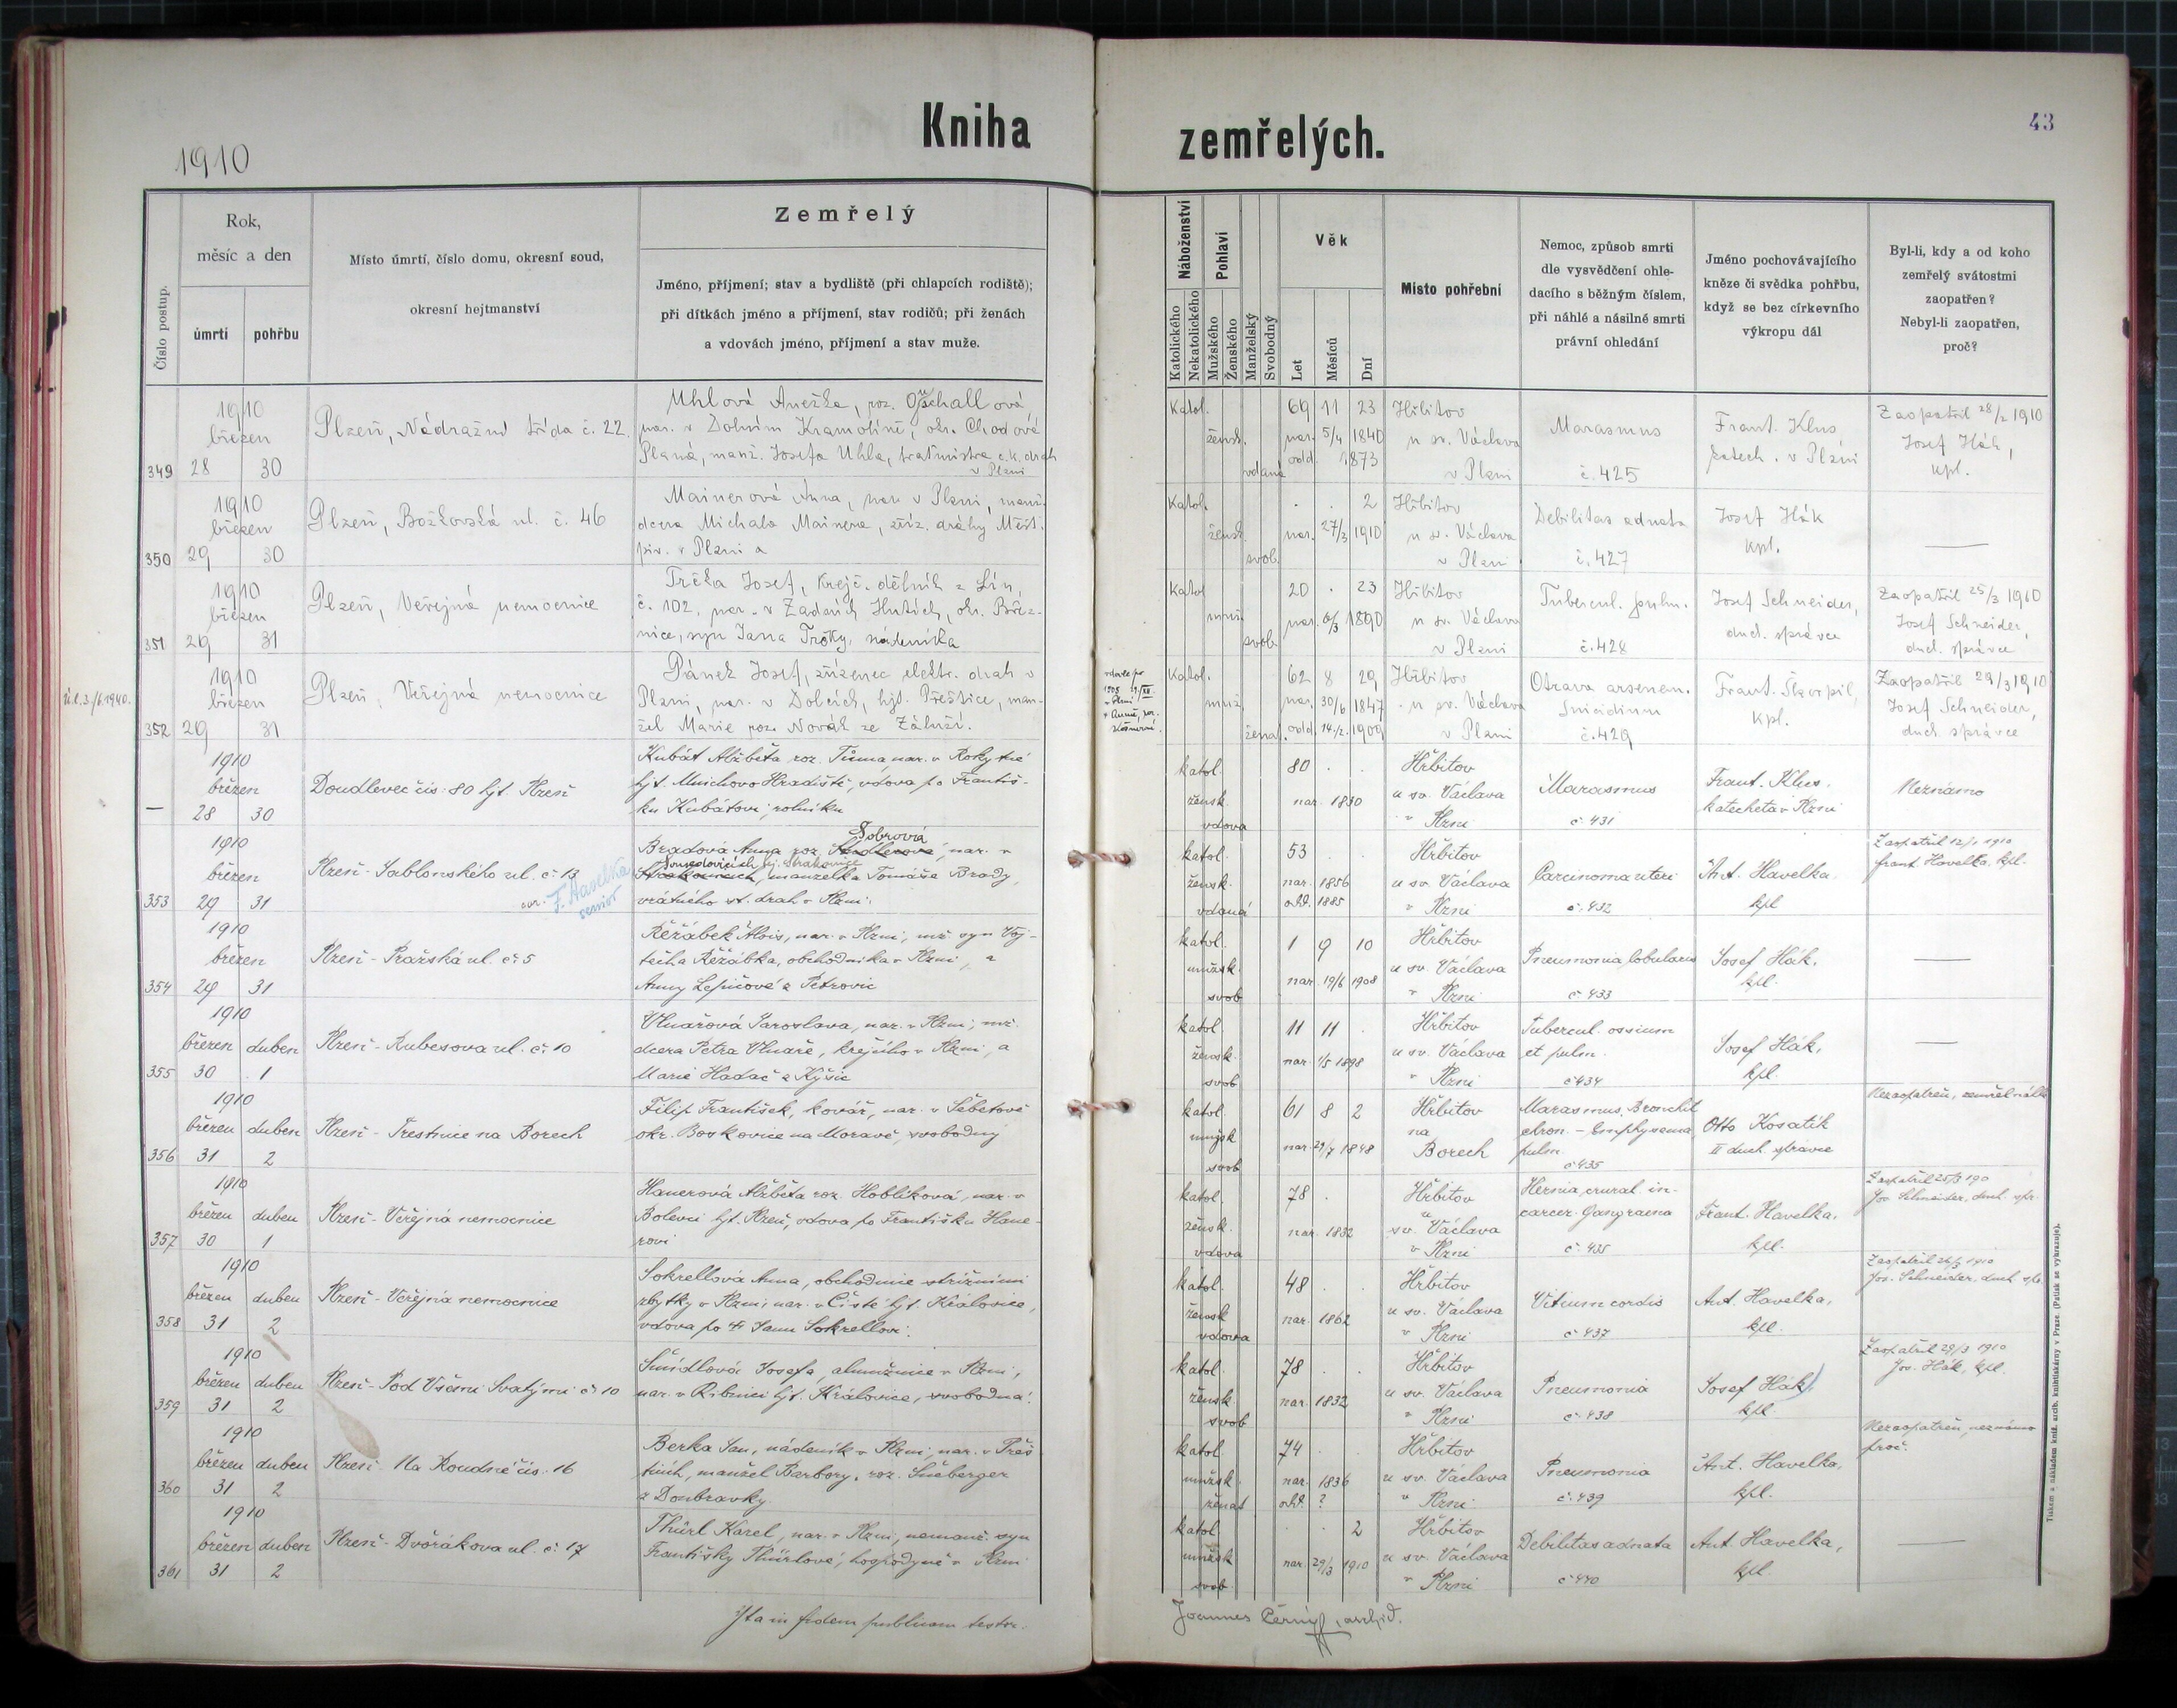 Kniha
zemřelých.
43
1910
Číslo postup.
Rok,
měsíc a den
úmrtí
pohřbu
Místo úmrtí, číslo domu, okresní soud,
okresní hejtmanství
Zemřelý
Jméno, příjmení; stav a bydliště (při chlapcích rodiště);
při dítkách jméno a příjmení, stav rodičů; při ženách
a vdovách jméno, příjmení a stav muže.
Náboženství
Katolického
Nekatolického
Pohlaví
Mužského
Ženského
Manželský
Svobodný
Věk
Let
Měsíců
Dní
Místo pohřební
Nemoc, způsob smrti
dle vysvědčení ohle-
dacího s běžným číslem,
při náhlé a násilné smrti
právní ohledání
Jméno pochovávajícího
kněze či svědka pohřbu,
když se bez církevního
výkropu dál
Byl-li, kdy a od koho
zemřelý svátostmi
zaopatřen?
Nebyl-li zaopatřen,
proč?
349
1910
březen
28 30
Plzeň, Nádražní třída č. 22
Uhlová Anežka, roz. Oschallová,
nar. v Dolním Kramolíně, okr. Chodová
Planá, manž. Josefa Uhla, traťmistra c.k. drah
v Plzni
Katol.
žensk.
vdaná
69 11 23
nar. 5/4 1840
odd. 1873
Hřbitov
u sv. Václava
v Plzni
Marasmus
č. 425
Frant. Klus
katech. v Plzni
Zaopatřil 28/2 1910
Josef Hák,
kpl.
350
1910
březen
29 30
Plzeň, Božkovská ul. č. 46
Mainerová Anna, nar. v Plzni, manž.
dcera Michala Mainera, zříz. dráhy Měšt.
piv. v Plzni a
Katol.
žensk.
svob.
. . 2
nar. 27/3 1910
Hřbitov
u sv. Václava
v Plzni
Debilitas adnata
č. 427
Josef Hák
kpl.
351
1910
březen
29 31
Plzeň, Veřejná nemocnice
Trčka Josef, krejč. dělník z Lín,
č. 102, nar. v Zadních Hutích, okr. Březnice, syn Jana Trčky, nádeníka
Katol
muž.
svob.
20 . 23
nar. 6/3 1890
Hřbitov
u sv. Václava
v Plzni
Tubercul. pulm.
č. 428
Josef Schneider,
duch. správce
Zaopatřil 25/3 1910
Josef Schneider,
duch. správce
352
1910
březen
29 31
Plzeň, Veřejná nemocnice
Pánek Josef, zřízenec elektr. drah v
Plzni, nar. v Dolcích, hjt. Přeštice, man-
žel Marie roz. Novák ze Záluží.
Katol.
muž.
ženat.
62 8 29
nar. 30/6 1847
odd. 14/2. 1909
Hřbitov
u sv. Václava
v Plzni
Otrava arsenem.
Suicidium
č. 429
Frant. Škorpil,
kpl.
Zaopatřil 29/3 1910
Josef Schneider,
duch. správce
1910
březen
28 30
Doudlevec čís. 80 hjt. Plzeň
Kubát Alžběta roz. Tůma, nar. v Rokytné
hjt. Mnichovo Hradiště, vdova po Františ-
ku Kubátovi, rolníku
katol.
žensk.
vdova
80 . .
nar. 1830
Hřbitov
u sv. Václava
v Plzni
Marasmus
č. 431
Frant. Klus.
katecheta v Plzni
Neznámo
353
1910
březen
29 31
Plzeň - Jablonského ul. č. 13
F. Havelka
senior
Sobrová
Bradová Anna roz. nar. v
manželka Tomáše Brady,
vrátného st. drah v Plzni.
katol.
žensk.
vdaná
53 . .
nar. 1856
odd. 1885
Hřbitov
u sv. Václava
v Plzni
Carcinoma uteri
č. 432
Ant. Havelka.
kpl
Zaopatřil 12/1 1910
Frant Havelka, kpl.
354
1910
březen
29 31
Plzeň - Pražská ul. č. 5
Řeřábek Alois, nar. v Plzni, mž. syn Voj-
těcha Řeřábka, obchodníka v Plzni, a
Anny Lepičové z Petrovic
katol.
mužsk.
svob
1 9 10
nar. 19/6 1908
Hřbitov
u sv. Václava
v Plzni
Pneumonia lobularis
č. 433
Josef Hák.
kpl.
355
1910
březen duben
30 1
Plzeň - Rubešova ul. č. 10
Vlnařová Jaroslava, nar. v Plzni, mž.
dcera Petra Vlnaře, krejčího v Plzni, a
Marie Hadač z Kyšic
katol.
žensk.
svob
11 11 .
nar. 1/5 1898
Hřbitov
u sv. Václava
v Plzni
Tubercul. ossium
et pulm.
č. 434
Josef Hák,
kpl.
356
1910
březen duben
31 2
Plzeň - Trestnice na Borech
Filip František, kovář, nar. v Šebetově
okr. Boskovice na Moravě, svobodný
katol.
mužsk
svob
61 8 2
nar. 29/7 1848
Hřbitov
na
Borech
Marasmus, Bronchit
chron. - Emphysema
pulm.
č. 435
Otto Kosatík
II duch. správce
Nezaopatřen, zemřel náhle
357
1910
březen duben
30 1
Plzeň - Veřejná nemocnice
Hanerová Alžběta roz. Hoblíková, nar. v
Bolevci hjt. Plzeň, vdova po Františku Hane-
rovi
katol.
žensk.
vdova
78 .
nar. 1832
Hřbitov
u
sv. Václava
v Plzni
Hernia crural. in-
carcer. Gangraena
č. 435
Frant. Havelka.
kpl.
Zaopatřil 25/3 190
Jos Schneider, duch. spr.
358
1910
březen duben
31 2
Plzeň - Veřejná nemocnice
Sokrellová Anna, obchodnice střižnými
zbytky v Plzni, nar. v Čisté hjt. Kralovice,
vdova po † Janu Sokrellovi.
katol.
žensk
vdova
48 . .
nar. 1862
Hřbitov
u sv. Václava
v Plzni
Vitium cordis
č. 437
Ant. Havelka,
kpl.
Zaopatřil 26/3 1910
Jos. Schneider, duch. spr.
359
1910
březen duben
31 2
Plzeň - Pod Všemi Svatými č. 10
Šmídlová Josefa, almužnice v Plzni,
nar. v Ribnici hjt. Kralovice, svobodná.
katol.
žensk.
svob
78 . .
nar. 1832
Hřbitov
u sv. Václava
v Plzni
Pneumonia
č. 438
Josef Hák,
kpl.
Zaopatřil 29/3 1910
Jos. Hák, kpl.
360
1910
březen duben
31 2
Plzeň - Na Roudné čís. 16
Berka Jan, nádeník v Plzni, nar. v Přeš-
ticích, manžel Barbory, roz. Šneberger
z Doubravky.
katol.
mužsk.
ženat
74 . .
nar. 1836
odd. ?
Hřbitov
u sv. Václava
v Plzni
Pneumonia
č. 439
Ant. Havelka,
kpl.
Nezaopatřen, neznámo
proč.
361
1910
březen duben
31 2
Plzeň - Dvořákova ul. č. 17
Thürl Karel, nar. v Plzni, nemanž. syn
Františky Thürlové, hospodyně v Plzni
katol.
mužsk
svob.
. . 2
nar. 29/3 1910
Hřbitov
u sv. Václava
v Plzni
Debilitas adnata
č. 440
Ant. Havelka,
kpl.
Ita in fidem publicam testor.
Joannes Černý, archid.
Tiskem a nákladem kníž. arcib. knihtiskárny v Praze. (Patisk se vyhrazuje).